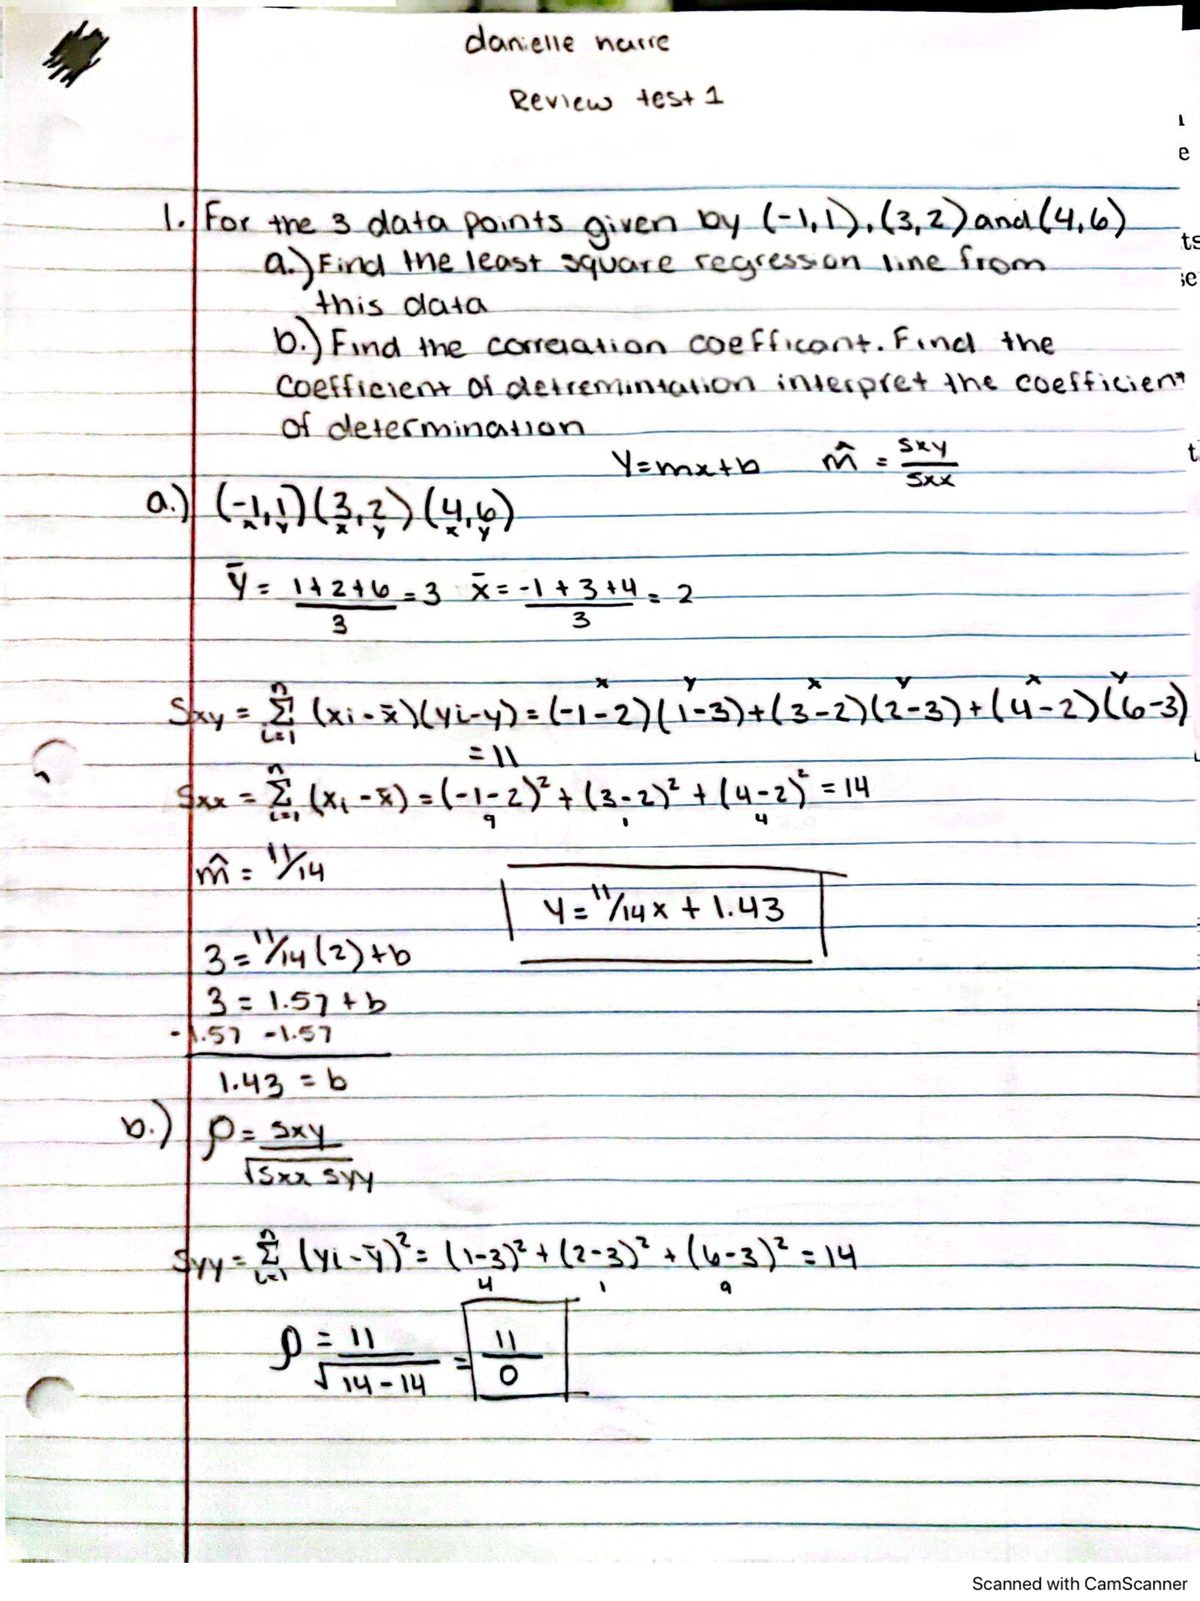 danielle narre
Review test 1
1. For the 3 data points given by (-1,1), (3,2) and (4,6)
a.) Find the least square regression line from
this data
b.) Find the correlation coefficant. Find the
coefficient of detremintation interpret the coefficient
of determination
Y=mx+b m̂ = Sxy/Sxx
a.) (-1,1) (3,2) (4,6)
x y x y x y
ȳ = (1+2+6)/3 = 3 x̄ = (-1+3+4)/3 = 2
x y x y x y
Sxy = Σ_{i=1}^{n} (xi-x̄)(yi-y) = (-1-2)(1-3)+(3-2)(2-3)+(4-2)(6-3)
= 11
Sxx = Σ_{i=1}^{n} (xi-x̄) = (-1-2)²+(3-2)²+(4-2)² = 14
9 1 4
m̂ = 11/14
Y = 11/14x + 1.43
3 = 11/14(2)+b
3 = 1.57+b
-1.57 -1.57
1.43 = b
b.) ρ = Sxy/√Sxx Syy
Syy = Σ_{i=1}^{n} (yi-ȳ)² = (1-3)²+(2-3)²+(6-3)² = 14
4 1 9
ρ = 11/√14-14 = 11/0
Scanned with CamScanner